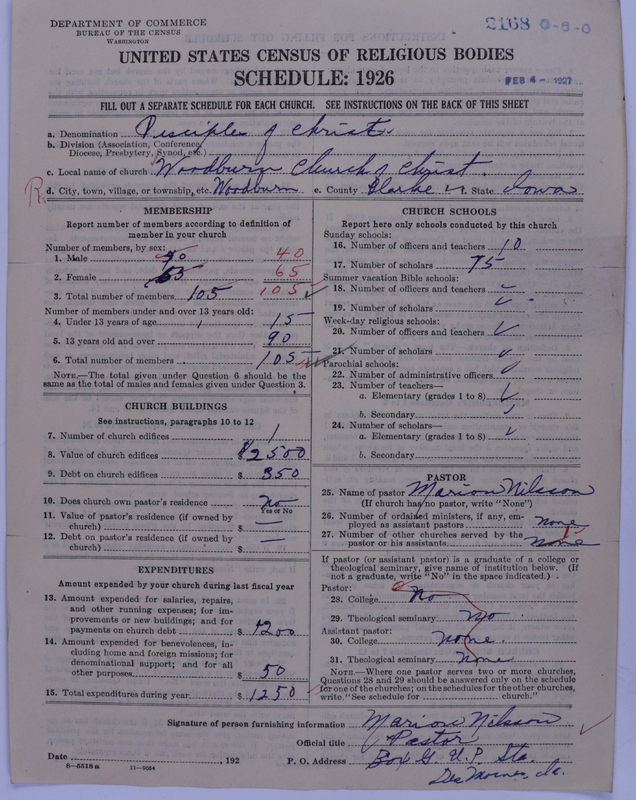 DEPARTMENT OF COMMERCE
BUREAU OF THE CENSUS
WASHINGTON
2168 0-8-0
UNITED STATES CENSUS OF RELIGIOUS BODIES
SCHEDULE: 1926
FEB 4 - 1927
FILL OUT A SEPARATE SCHEDULE FOR EACH CHURCH. SEE INSTRUCTIONS ON THE BACK OF THIS SHEET
a. Denomination Disciples of Christ.
b. Division (Association, Conference,
Diocese, Presbytery, Synod, etc.)
c. Local name of church Woodburn Church of Christ.
d. City, town, village, or township, etc. Woodburn e. County Clarke f. State Iowa
MEMBERSHIP
Report number of members according to definition of
member in your church
Number of members, by sex:
1. Male 40 40
2. Female 63 65
3. Total number of members 105 105
Number of members under and over 13 years old:
4. Under 13 years of age 15
5. 13 years old and over 90
6. Total number of members 105
NOTE.—The total given under Question 6 should be the
same as the total of males and females given under Question 3.
CHURCH BUILDINGS
See instructions, paragraphs 10 to 12
7. Number of church edifices 1
8. Value of church edifices $2500
9. Debt on church edifices $ 350
10. Does church own pastor's residence No
Yes or No
11. Value of pastor's residence (if owned by
church) $ —
12. Debt on pastor's residence (if owned by
church) $ —
EXPENDITURES
Amount expended by your church during last fiscal year
13. Amount expended for salaries, repairs,
and other running expenses; for im-
provements or new buildings; and for
payments on church debt $ 1200
14. Amount expended for benevolences, in-
cluding home and foreign missions; for
denominational support; and for all
other purposes $ 50
15. Total expenditures during year $ 1250
CHURCH SCHOOLS
Report here only schools conducted by this church
Sunday schools:
16. Number of officers and teachers 10
17. Number of scholars 75
Summer vacation Bible schools:
18. Number of officers and teachers
19. Number of scholars
Week-day religious schools:
20. Number of officers and teachers
21. Number of scholars
Parochial schools:
22. Number of administrative officers
23. Number of teachers—
a. Elementary (grades 1 to 8)
b. Secondary
24. Number of scholars—
a. Elementary (grades 1 to 8)
b. Secondary
PASTOR
25. Name of pastor Marion Nilsson
(If church has no pastor, write "None")
26. Number of ordained ministers, if any, em-
ployed as assistant pastors none
27. Number of other churches served by the
pastor or his assistants none
If pastor (or assistant pastor) is a graduate of a college or
theological seminary, give name of institution below. (If
not a graduate, write "No" in the space indicated.)
Pastor:
28. College No
29. Theological seminary No
Assistant pastor:
30. College none.
31. Theological seminary none
NOTE.—Where one pastor serves two or more churches,
Questions 28 and 29 should be answered only on the schedule
for one of the churches; on the schedules for the other churches,
write "See schedule for church."
Signature of person furnishing information Marion Nilsson
Official title Pastor
Date , 192 P. O. Address Box G. U.P. Sta.
Des Moines, Ia.
8—5518a 11—9054